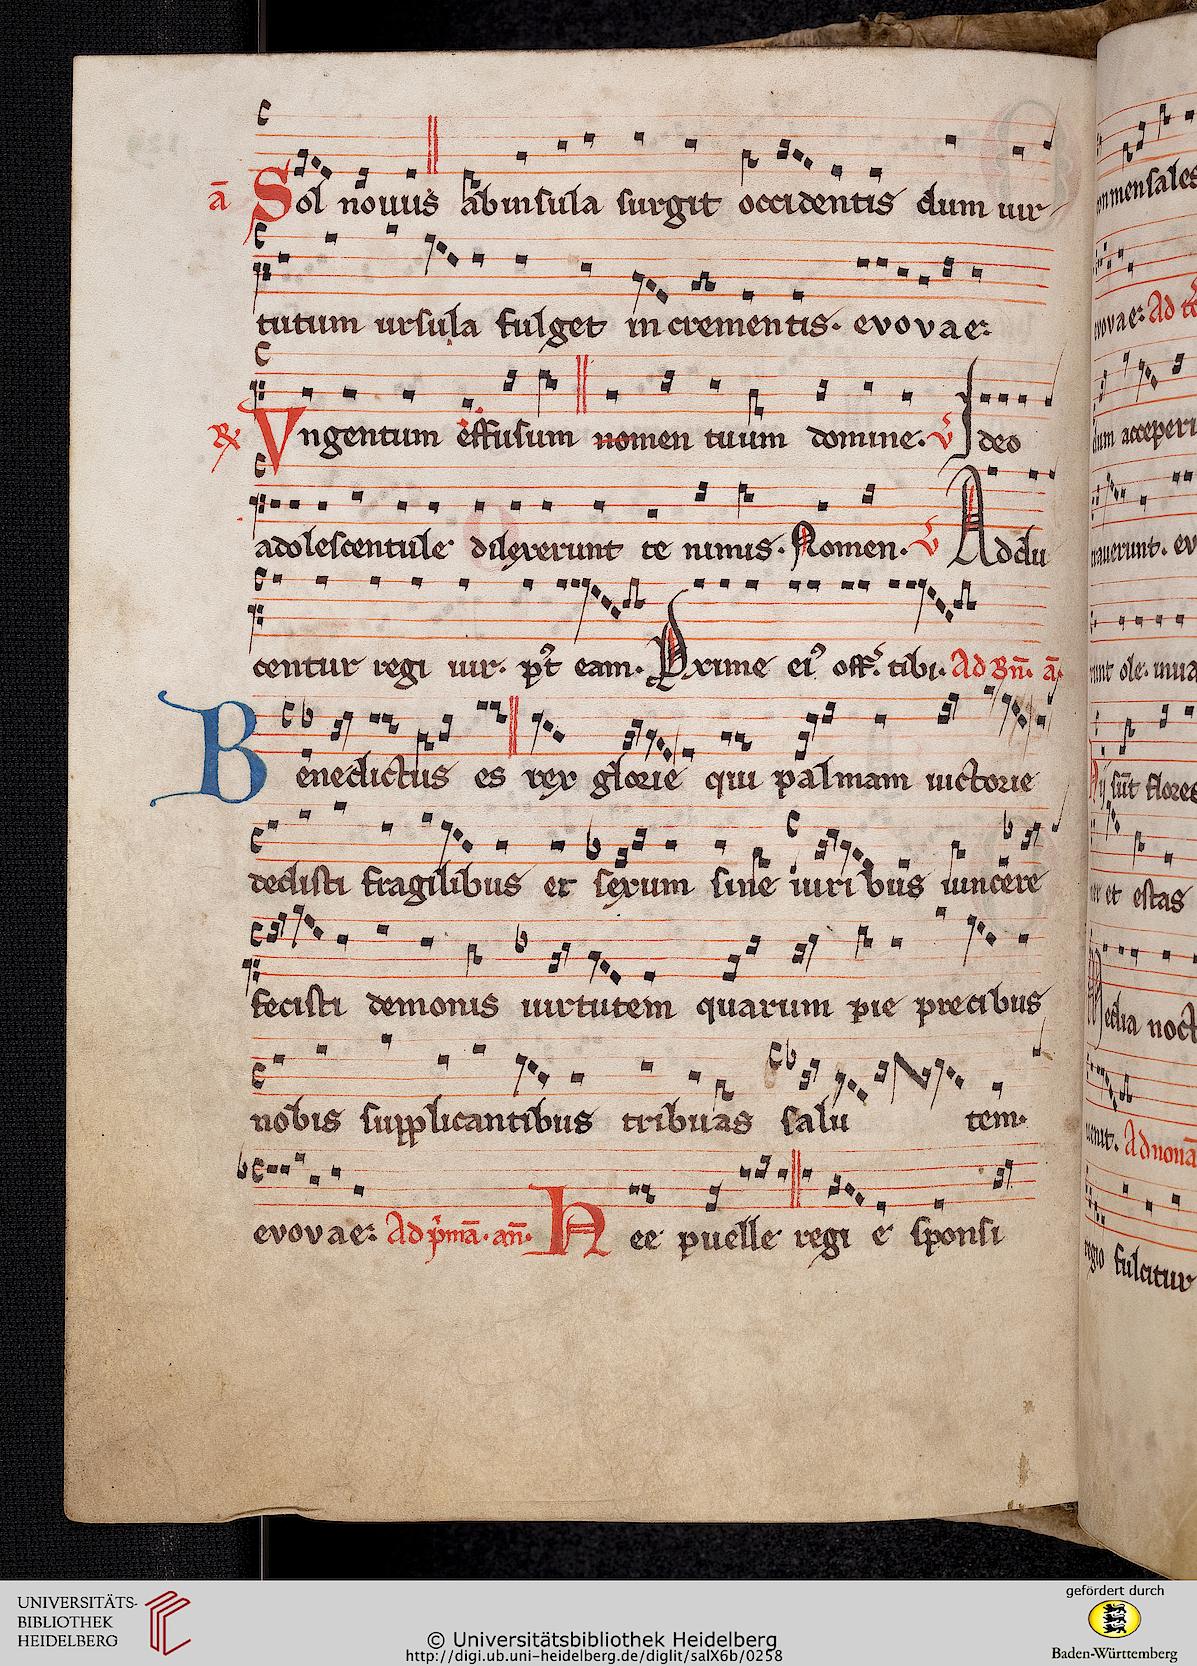 ā Sol nouus ab insula surgit occidentis dum uir
tutum ursula fulget in crementis. evovae:
℟ Vngentum effusum nomen tuum domine. v̄ Ideo
adolescentule dilexerunt te nimis. Nomen. v̄ Addu
centur regi uir. p̄t eam. Proxime ei⁹ off. tibi. Ad Bn̄. ā.
Benedictus es rex glorie qui palmam uictorie
dedisti fragilibus et sexum sine uiribus uincere
fecisti demonis uirtutem quarum pie precibus
nobis supplicantibus tribuas salu tem.
evovae: Ad p̄mā. an̄. Hee puelle regi e sponsi
onmensales
evovae: Ad
dum acceperi
trauerunt. ev
runt ole. mua
Hij sūt flores
uer et estas
Media noct
uenit. Ad nonā
regio fulcitur
UNIVERSITÄTS-
BIBLIOTHEK
HEIDELBERG
© Universitätsbibliothek Heidelberg
http://digi.ub.uni-heidelberg.de/diglit/salX6b/0258
gefördert durch
Baden-Württemberg